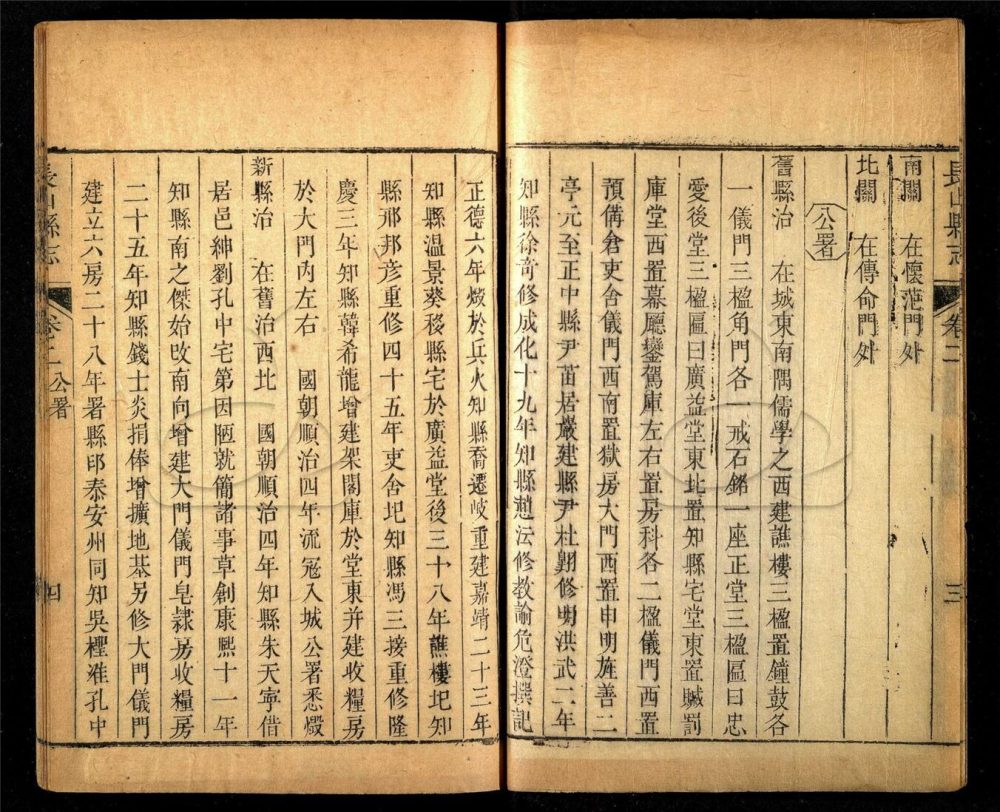 長山縣志 卷二 三
南關 在懷范門外
北關 在傳命門外
公署
舊縣治 在城東南隅儒學之西建譙樓三楹置鐘鼓各
一儀門三楹角門各一戒石銘一座正堂三楹匾曰忠
愛後堂三楹匾曰廣益堂東北置知縣宅堂東置贓罰
庫堂西置幕廳鑾駕庫左右置房科各二楹儀門西置
預備倉吏舍儀門西南置獄房大門西置申明旌善二
亭元至正中縣尹苗居嚴建縣尹杜翺修明洪武二年
知縣徐奇修成化十九年知縣趙法修教諭危澄撰記
正德六年燬於兵火知縣喬遷岐重建嘉靖二十三年
知縣温景葵移縣宅於廣益堂後三十八年譙樓圯知
縣邢邦彦重修四十五年吏舍圯知縣馮三接重修隆
慶三年知縣韓希龍增建架閣庫於堂東并建收糧房
於大門內左右 國朝順治四年流寇入城公署悉燬
新縣治 在舊治西北 國朝順治四年知縣朱天寧借
居邑紳劉孔中宅第因陋就簡諸事草創康熙十一年
知縣南之傑始改南向增建大門儀門皂隸房收糧房
二十五年知縣錢士炎捐俸增擴地基另修大門儀門
建立六房二十八年署縣印泰安州同知吳檉准孔中
長山縣志 卷之二 公署 四